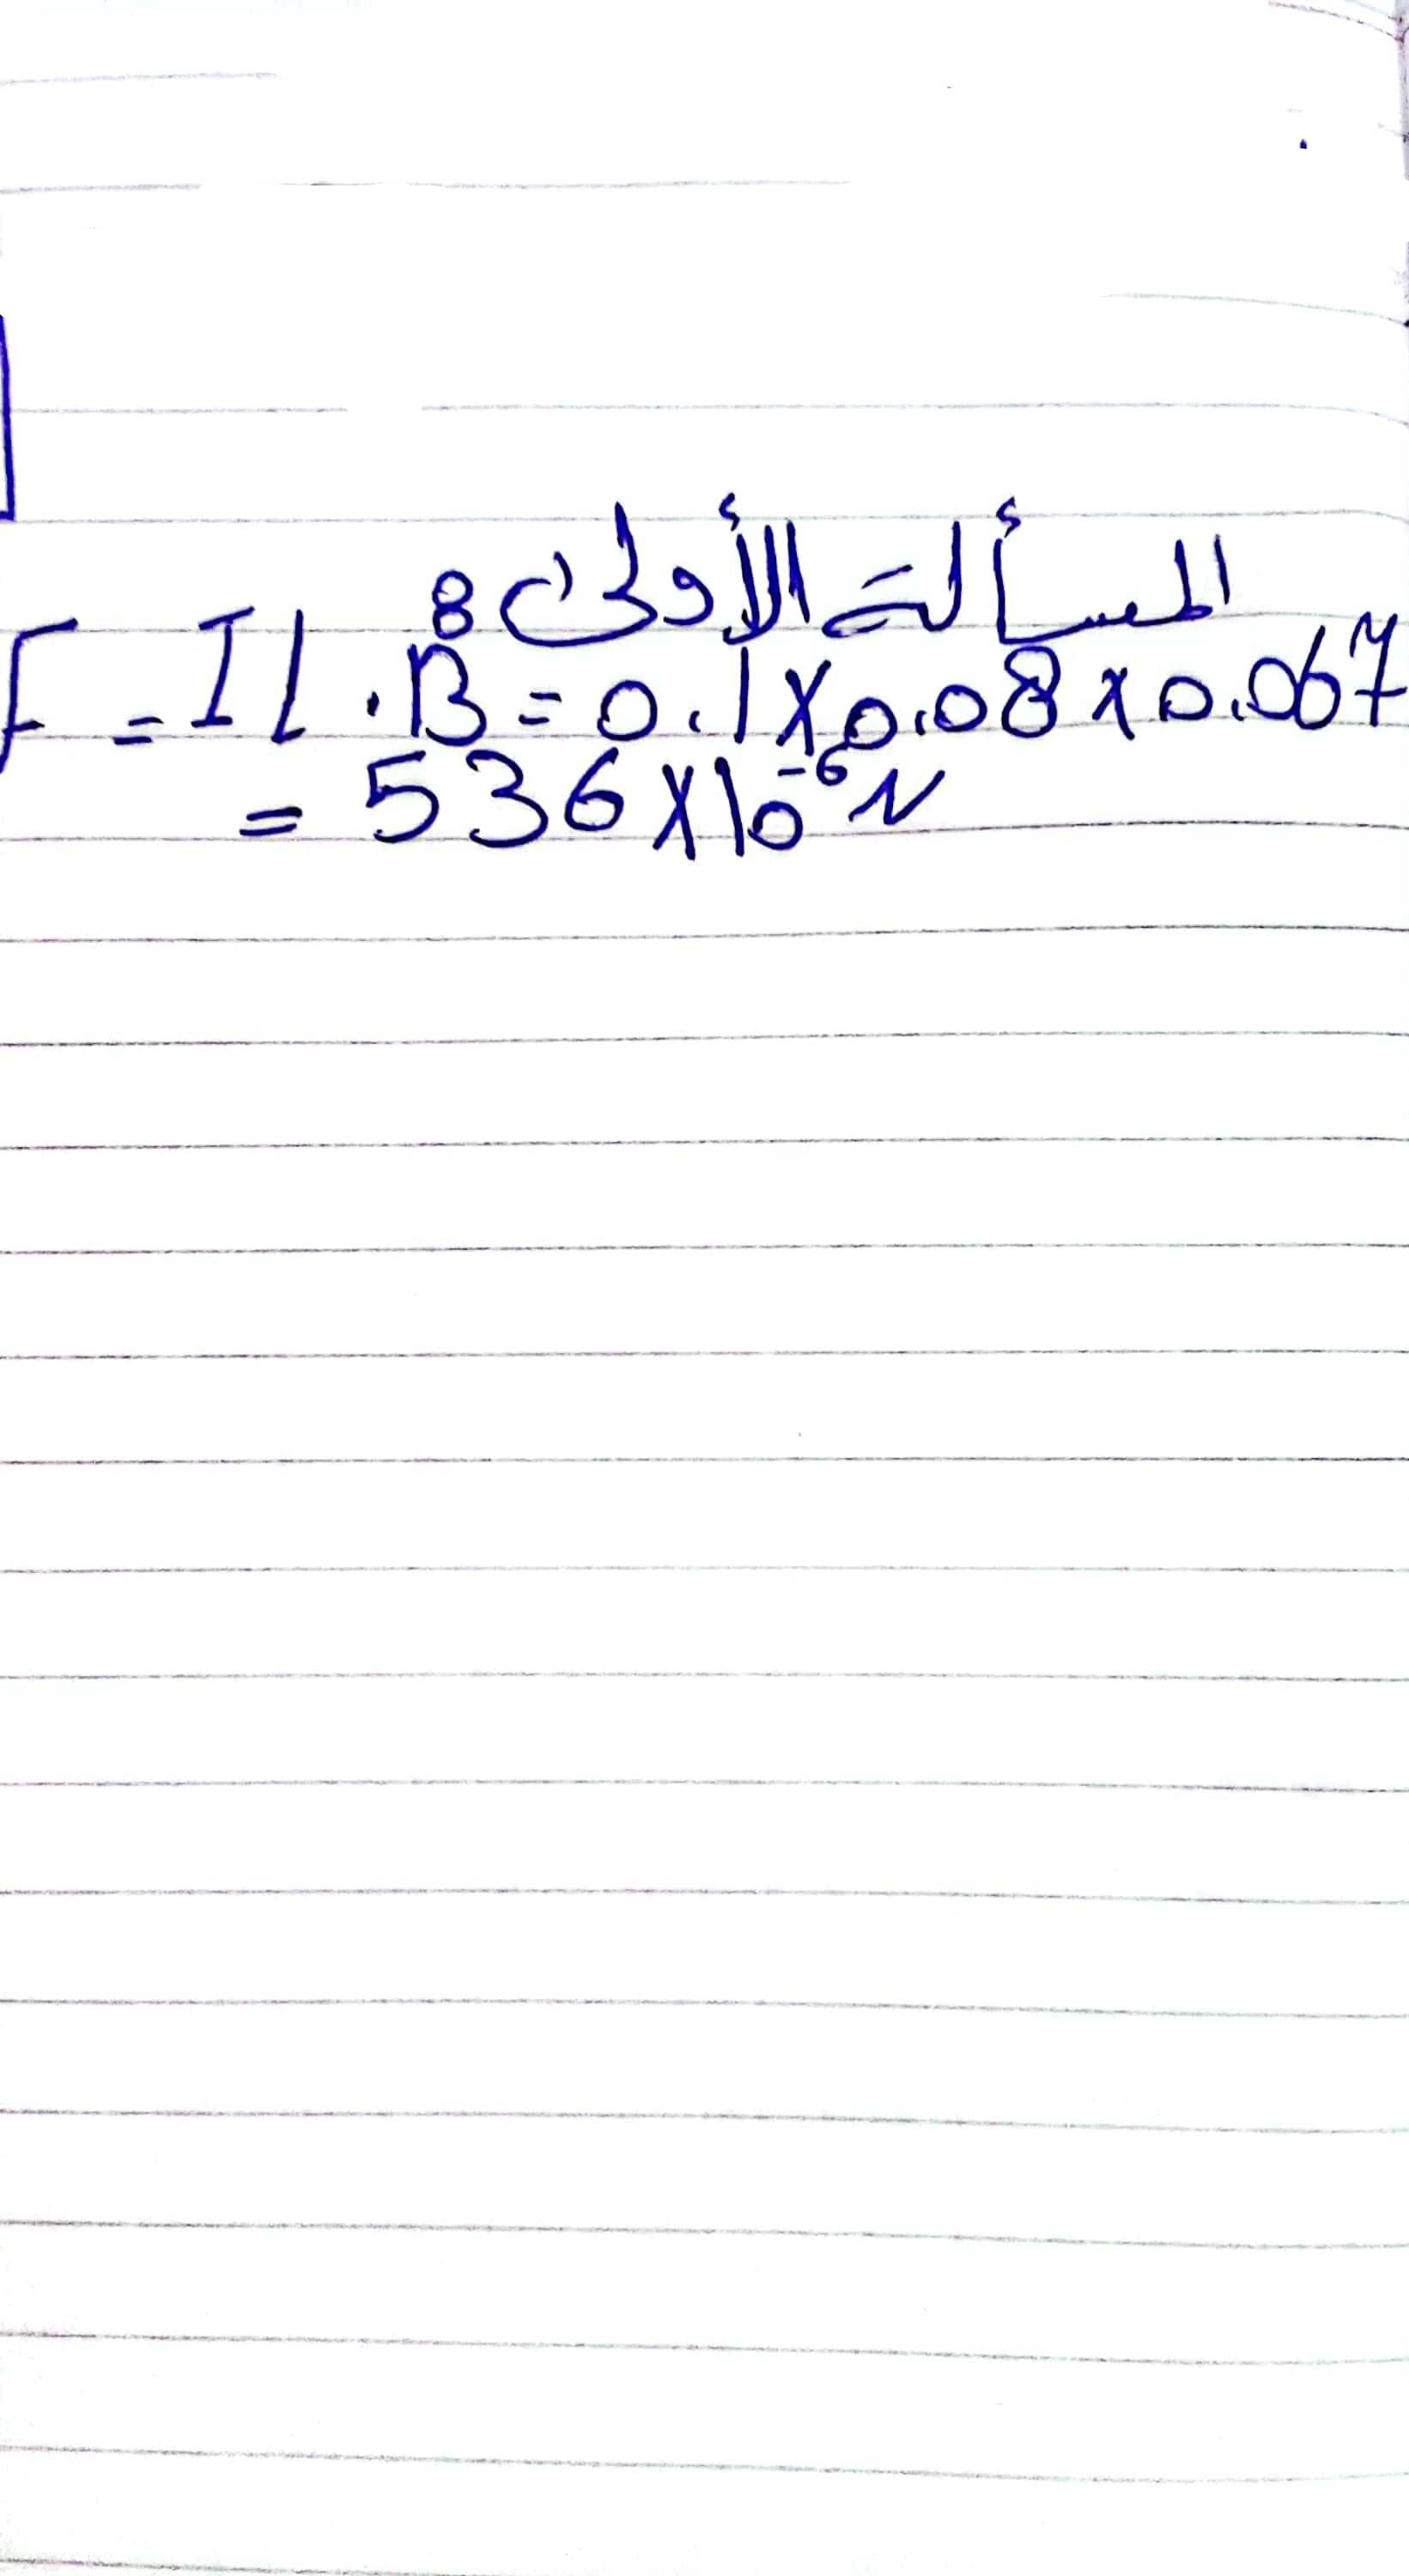 المسألة الأولى :
F = I L . B = 0.1 x 0.08 x 0.067
= 536 x 10⁻⁶ N